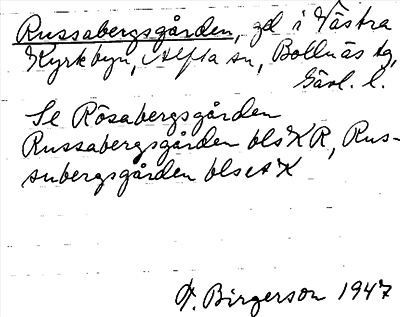 Russabergsgården, gd i Västra
Kyrkbyn, Alfta sn, Bollnäs tg,
Gävl. l.
Se Rösabergsgården
Russabergsgården bls XR, Rus-
subergsgården bls X
F. Birgerson 1947